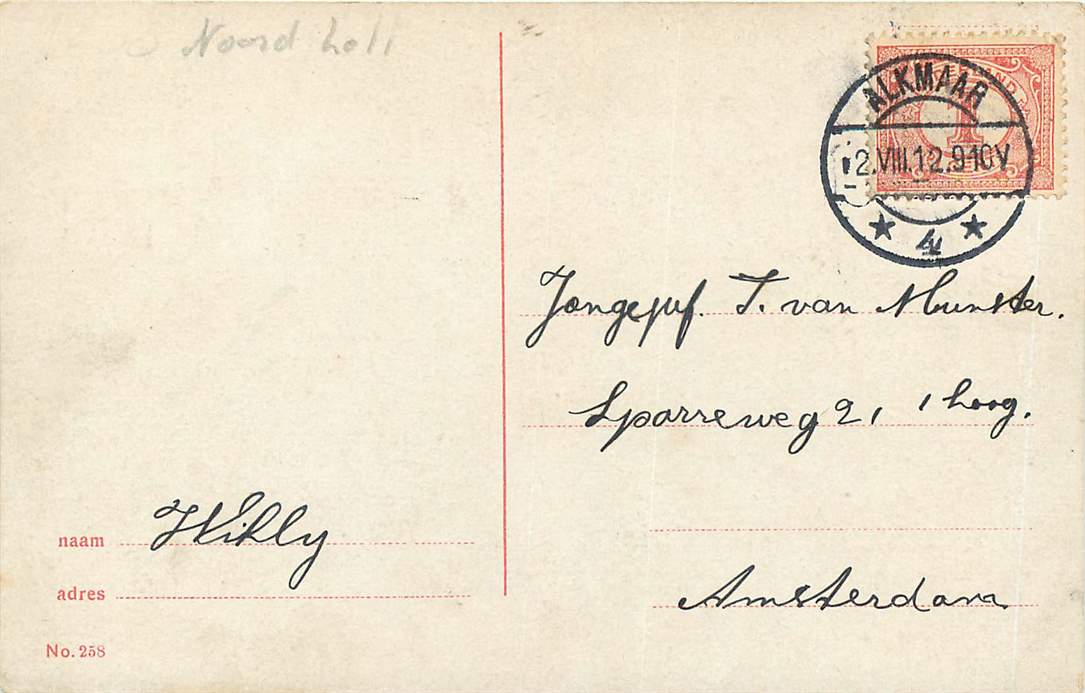 Noord holl
ALKMAAR
2.VIII.12.9-10V
4
1
Jongejuf. T. van Munster.
Sparreweg 21 1 hoog.
Amsterdam
naam Willy
adres
No. 258